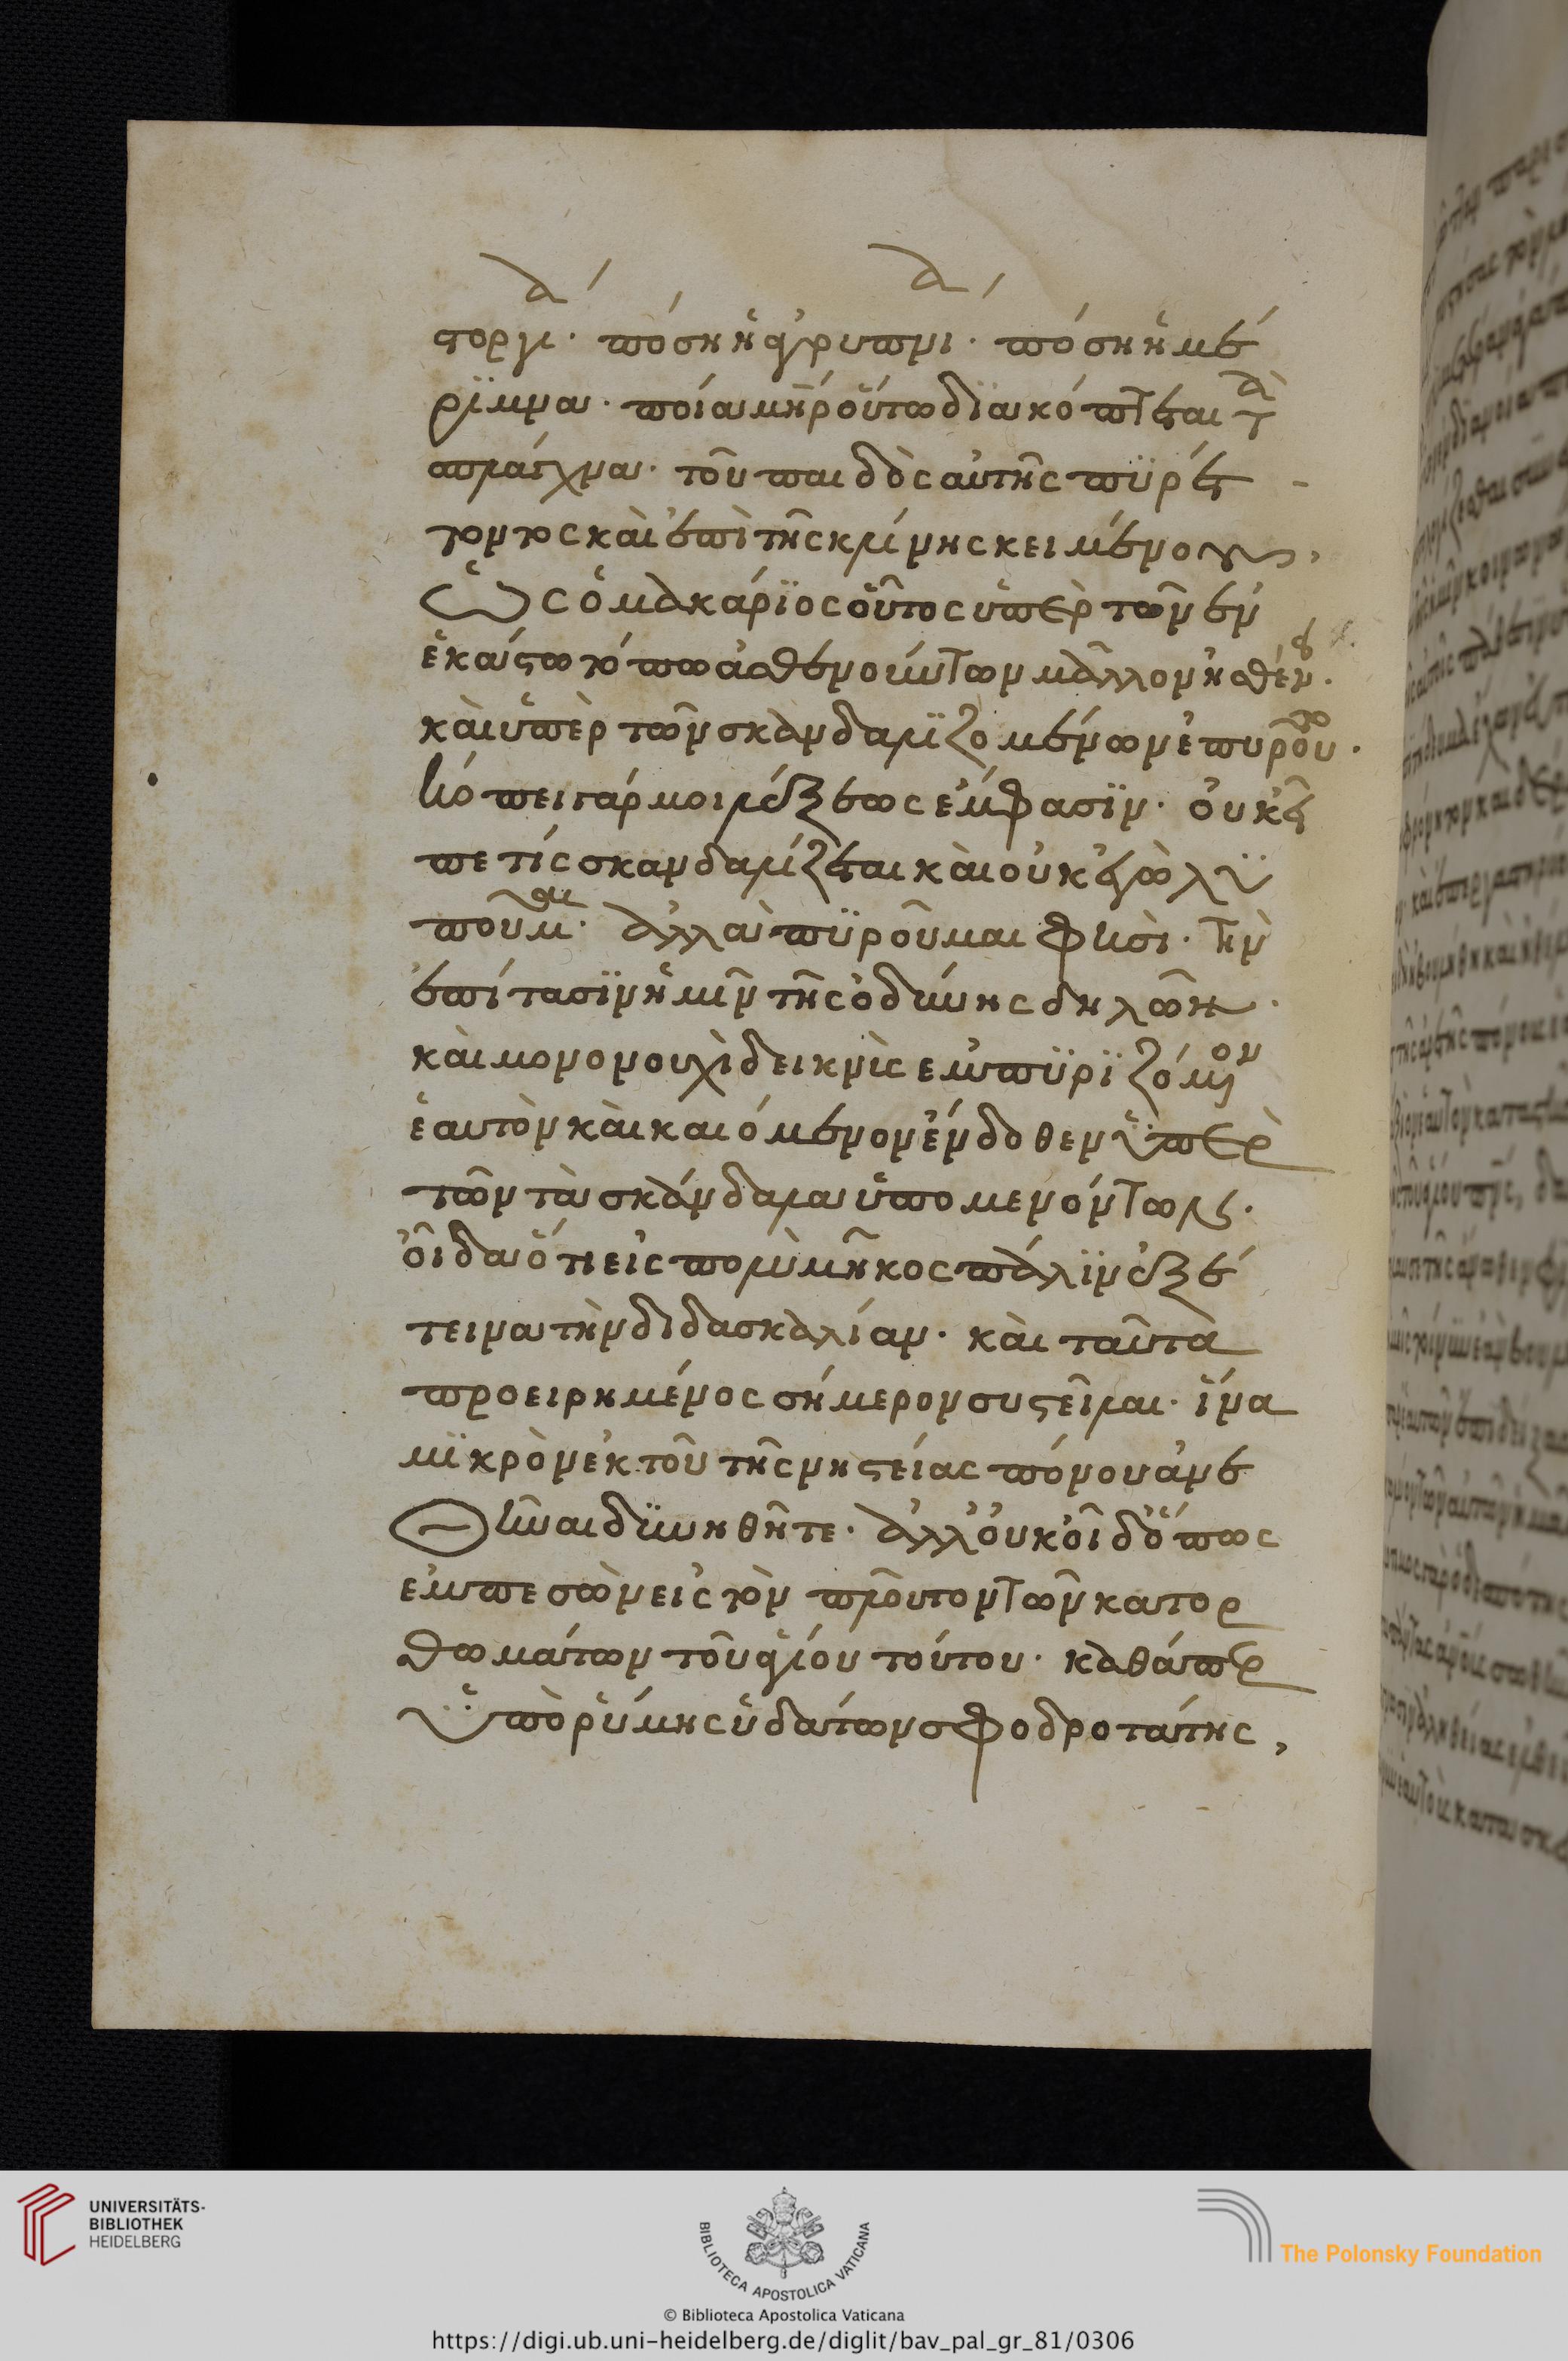 στοργὴ. πόση ἡ φροντὶς. πόση ἡ μέ
ριμνα. ποία μήτηρ οὕτω διακόπτεται τὰ
σπλάγχνα. τοῦ παιδὸς αὐτῆς πυρέτ
τοντος καὶ ἐπὶ τῆς κλίνης κειμένου,
Ὡς ὁ μακάριος οὗτος ὑπὲρ τῶν ἐν
ἑκάστω τόπω ἀσθενούντων μᾶλλον ἠσθένει.
καὶ ὑπὲρ τῶν σκανδαλιζομένων ἐπυροῦτο.
κόπει γάρ μοι λέξεως ἔμφασιν. οὐκ εἶ
πε τίς σκανδαλίζεται καὶ οὐκ ἐγὼ λυ
ποῦμαι. ἀλλὰ πυροῦμαι φησὶ. τὴν
ἐπίτασιν ἡμῖν τῆς ὀδύνης δηλῶν.
καὶ μονονουχὶ δεικνὺς ἐμπυριζόμενον
ἑαυτὸν καὶ καιόμενον ἔνδοθεν ὑπὲρ
τῶν τὰ σκάνδαλα ὑπομενόντων.
οἶδα ὅτι εἰς πολὺ μῆκος πάλιν ἐξέ
τεινα τὴν διδασκαλίαν. καὶ ταῦτα
προειρημένος σήμερον συστεῖλαι. ἵνα
μικρὸν ἐκ τοῦ τῆς νηστείας πόνου ἀνε
θῆναι δυνηθῆτε. ἀλλ' οὐκ οἶδ' ὅπως
ἐμπεσὼν εἰς τὸν πλοῦτον τῶν κατορ
θωμάτων τοῦ ἁγίου τούτου. καθάπερ
ὑπὸ ῥύμης ὑδάτων σφοδροτάτης,
UNIVERSITÄTS-
BIBLIOTHEK
HEIDELBERG
BIBLIOTECA APOSTOLICA VATICANA
The Polonsky Foundation
© Biblioteca Apostolica Vaticana
https://digi.ub.uni-heidelberg.de/diglit/bav_pal_gr_81/0306